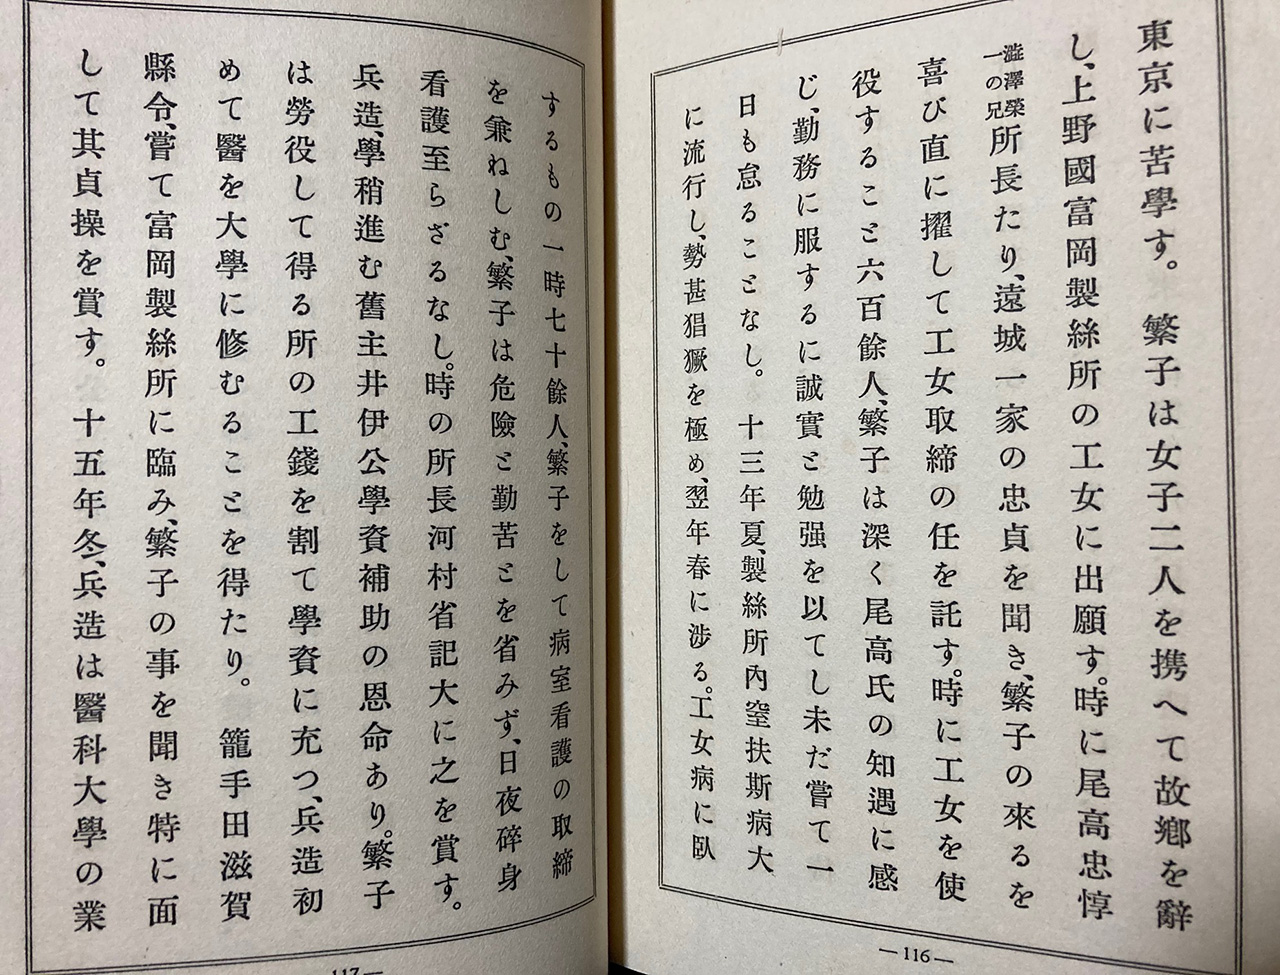 東京に苦學す。 繁子は女子二人を携へて故鄕を辭
し、上野國富岡製絲所の工女に出願す。時に尾高忠惇
澁澤榮一の兄所長たり、遠城一家の忠貞を聞き、繁子の來るを
喜び直に擢して工女取締の任を託す。時に工女を使
役すること六百餘人、繁子は深く尾高氏の知遇に感
じ、勤務に服するに誠實と勉强を以てし未だ嘗て一
日も怠ることなし。 十三年夏、製絲所內窒扶斯病大
に流行し、勢甚猖獗を極め、翌年春に涉る。工女病に臥
— 116 —
するもの一時七十餘人、繁子をして病室看護の取締
を兼ねしむ、繁子は危險と勤苦とを省みず、日夜碎身
看護至らざるなし。時の所長河村省記大に之を賞す。
兵造、學稍進む舊主井伊公學資補助の恩命あり。繁子
は勞役して得る所の工錢を割て學資に充つ、兵造初
めて醫を大學に修むることを得たり。 籠手田滋賀
縣令、嘗て富岡製絲所に臨み、繁子の事を聞き特に面
して其貞操を賞す。 十五年冬、兵造は醫科大學の業
117 —